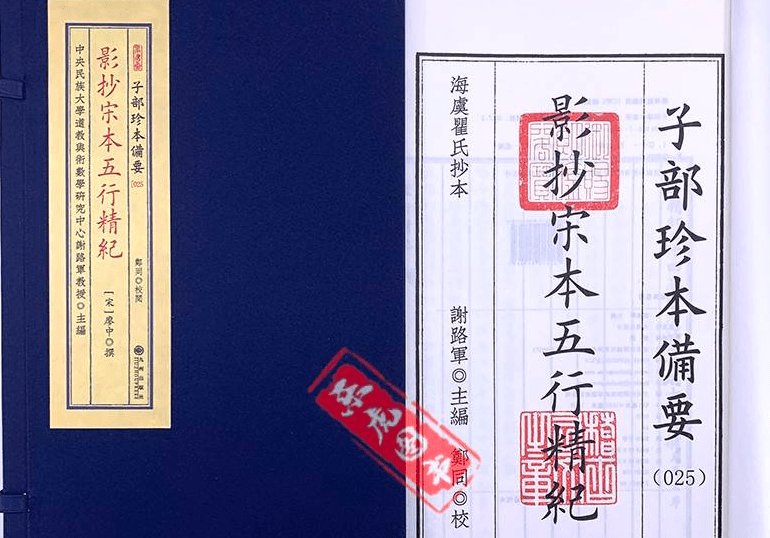 子部珍本備要
[025
影抄宋本五行精紀
鄭同◎校閱
[宋]廖中◎撰
中央民族大學道教與術數學研究中心謝路軍教授◎主編
九州出版社
子部珍本備要
(025)
影抄宋本五行精紀
海虞瞿氏抄本
謝路軍◎主編 鄭同◎校